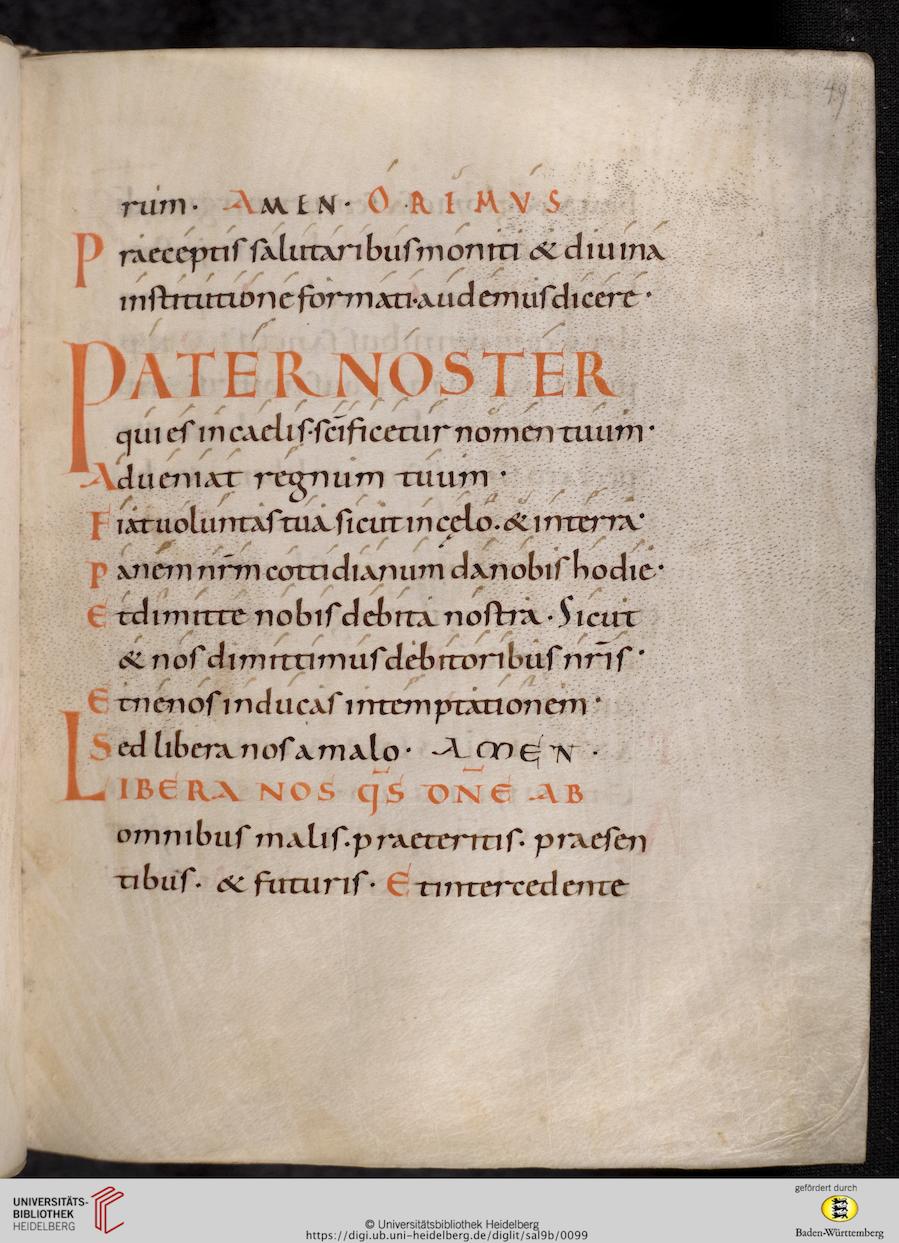 49
rum· AMEN· ORIMVS
Praeceptis salutaribus moniti & diuina
institutione formati·audemus dicere·
PATER NOSTER
qui es in caelis·scīficetur nomen tuum·
Adueniat regnum tuum·
Fiat uoluntas tua sicut in cęlo·& in terra·
Panem nr̄m cottidianum da nobis hodie·
Et dimitte nobis debita nostra·Sicut
& nos dimittimus debitoribus nr̄is·
Et ne nos inducas in temptationem·
Sed libera nos a malo· AMEN·
LIBERA NOS q̄S DN̄E AB
omnibus malis·praeteritis·praesen
tibus· & futuris· Et intercedente
UNIVERSITÄTS-
BIBLIOTHEK
HEIDELBERG
© Universitätsbibliothek Heidelberg
https://digi.ub.uni-heidelberg.de/diglit/sal9b/0099
gefördert durch
Baden-Württemberg